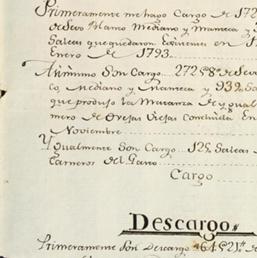 Primeramente me hago Cargo de 172
de Sevo Blanco Mediano y Manteca y
Galeas que quedaron Existentes en
Enero de 1793.
Asimismo Son Cargo 272@8 de Sevo
co, Mediano y Manteca y 932 Galeas
que produjo la Matanza de ygual
mero de Ovejas Viejas Concluida En
Noviembre
Ygualmente Son Cargo 125 Galeas
Carneros del Gasto
Cargo
Descargo
Primeramente Son Descargo 64521